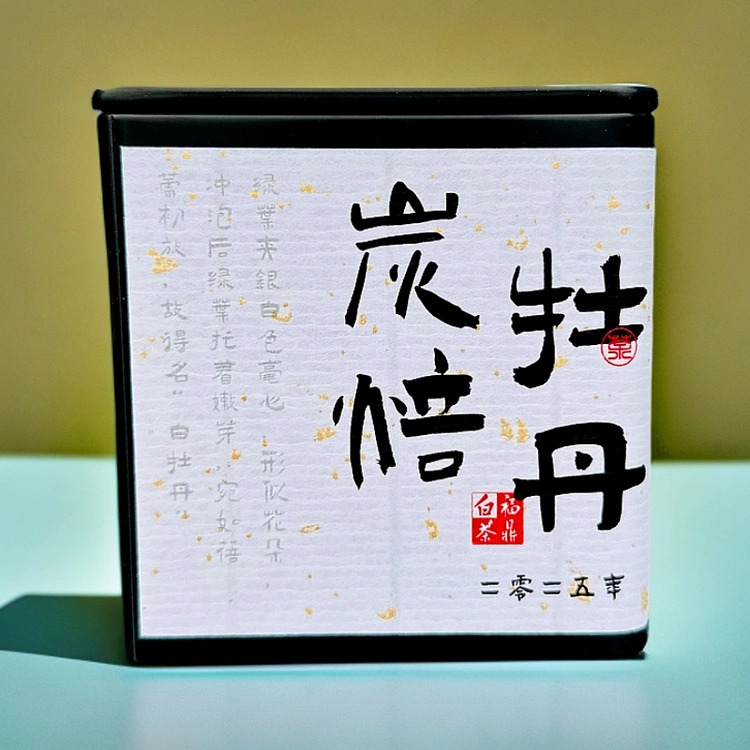 牡丹
茶
炭焙
福鼎
白茶
二零二五年
绿葉夹銀白色毫心,形似花朵,
冲泡后绿葉托着嫩芽,宛如蓓
蕾初放,故得名"白牡丹"